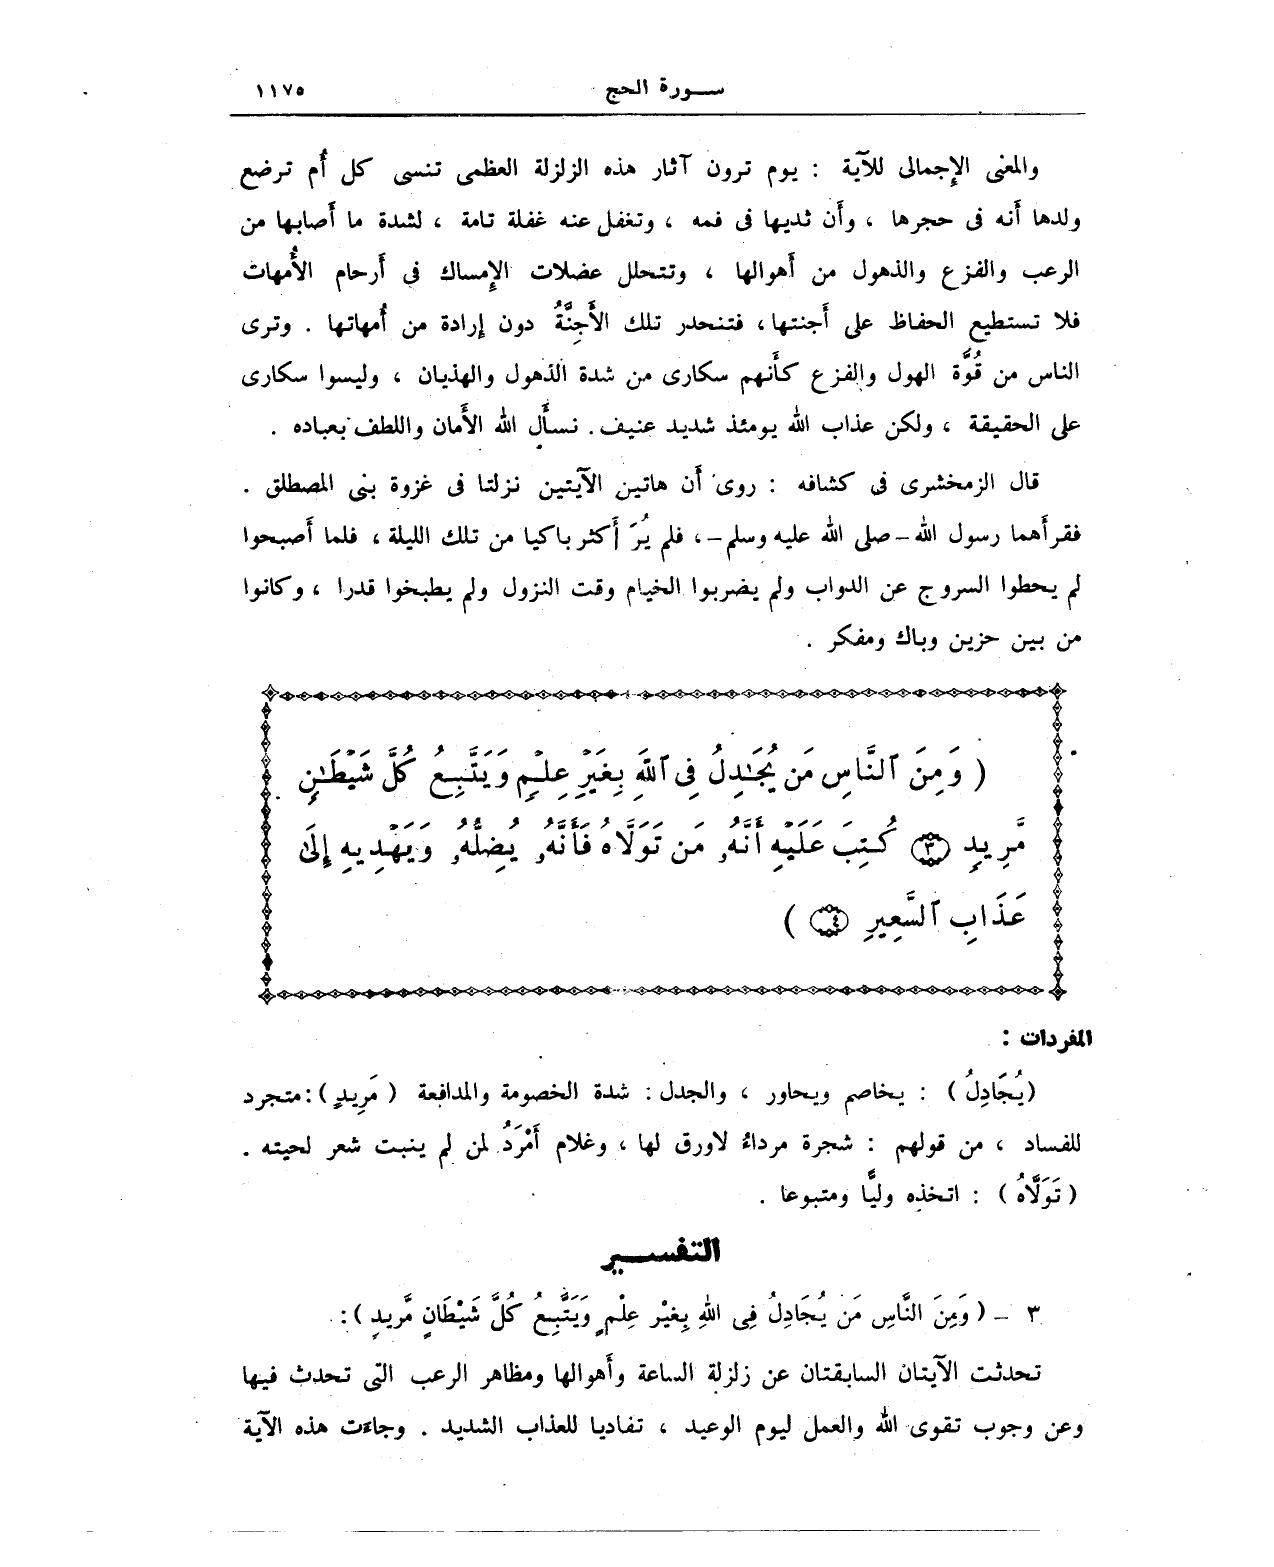 ســورة الحج ١١٧٥
والمعنى الإجمالى للآية : يوم ترون آثار هذه الزلزلة العظمى تنسى كل أُم ترضع
ولدها أَنه فى حجرها ، وأَن ثديها فى فمه ، وتغفل عنه غفلة تامة ، لشدة ما أَصابها من
الرعب والفزع والذهول من أَهوالها ، وتتحلل عضلات الإِمساك فى أَرحام الأُمهات
فلا تستطيع الحفاظ على أَجنتها، فتنحدر تلك الأَجِنَّةُ دون إرادة من أُمهاتها . وترى
الناس من قُوَّة الهول والفزع كأَنهم سكارى من شدة الذهول والهذيان ، وليسوا سكارى
على الحقيقة ، ولكن عذاب الله يومئذ شديد عنيف. نسأَل الله الأَمان واللطف بعباده .
قال الزمخشرى فى كشافه : روى أَن هاتين الآيتين نزلتا فى غزوة بنى المصطلق .
فقرأَهما رسول الله – صلى الله عليه وسلم –، فلم يُرَ أكثر باكيا من تلك الليلة ، فلما أَصبحوا
لم يحطوا السروج عن الدواب ولم يضربوا الخيام وقت النزول ولم يطبخوا قدرا ، وكانوا
من بين حزين وباك ومفكر .
( وَمِنَ ٱلنَّاسِ مَن يُجَٰدِلُ فِى ٱللَّهِ بِغَيْرِ عِلْمٍ وَيَتَّبِعُ كُلَّ شَيْطَٰنٍ
مَّرِيدٍ ٣ كُتِبَ عَلَيْهِ أَنَّهُۥ مَن تَوَلَّاهُ فَأَنَّهُۥ يُضِلُّهُۥ وَيَهْدِيهِ إِلَىٰ
عَذَابِ ٱلسَّعِيرِ ٤ )
المفردات :
(يُجَادِلُ ) : يخاصم ويحاور ، والجدل : شدة الخصومة والمدافعة ( مَرِيدٍ ) : متجرد
للفساد ، من قولهم : شجرة مرداءُ لاورق لها ، وغلام أَمْرَدُ لمن لم ينبت شعر لحيته .
( تَوَلَّاهُ ) : اتخذه وليًّا ومتبوعا .
التفســير
٣ – ( وَمِنَ النَّاسِ مَن يُجَادِلُ فِى اللهِ بِغيْرِ عِلْمٍ وَيَتَّبِعُ كُلَّ شَيْطَانٍ مَّرِيدٍ ) :
تحدثت الآيتان السابقتان عن زلزلة الساعة وأَهوالها ومظاهر الرعب التى تحدث فيها
وعن وجوب تقوى الله والعمل ليوم الوعيد ، تفاديا للعذاب الشديد . وجاءَت هذه الآية